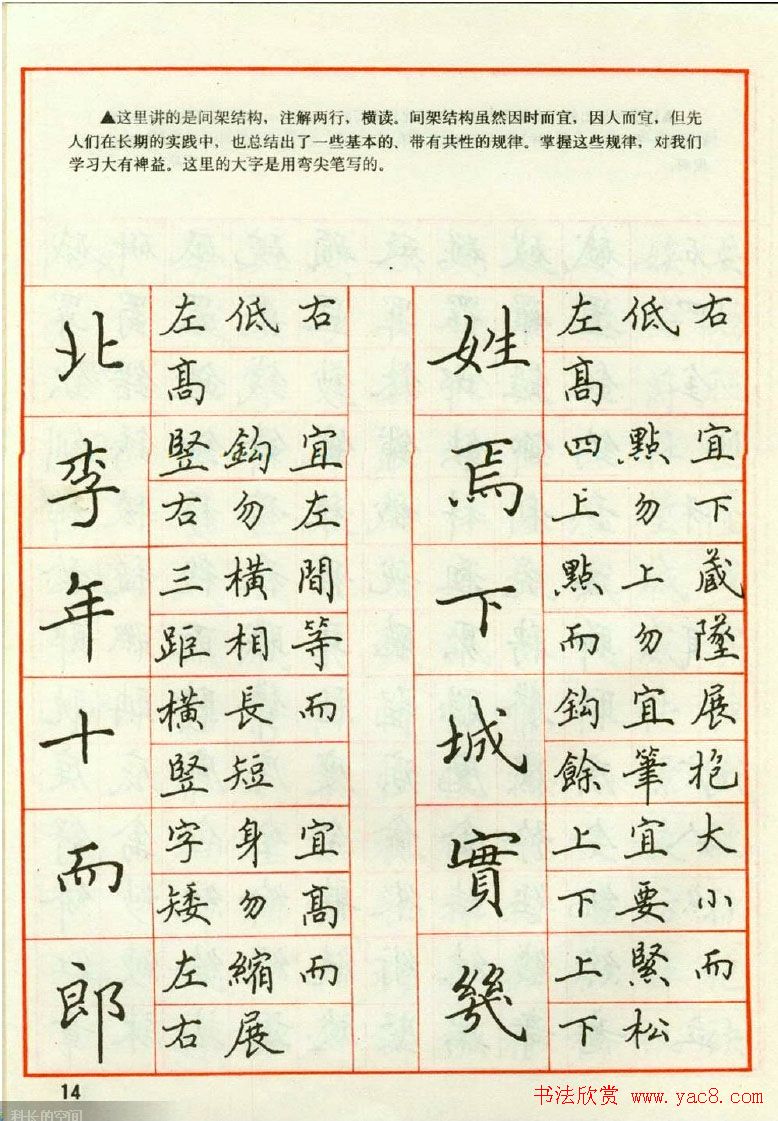 ▲这里讲的是间架结构，注解两行，横读。间架结构虽然因时而宜，因人而宜，但先
人们在长期的实践中，也总结出了一些基本的、带有共性的规律。掌握这些规律，对我们
学习大有裨益。这里的大字是用弯尖笔写的。
北
左低右
高
李
豎鈎宜
右勿左
年
三橫間
距相等
十
橫長而
豎短
而
字身宜
矮勿高
郎
左縮而
右展
姓
左低右
高
焉
四點宜
上勿下
下
點上蔵
而勿墜
城
鈎宜展
餘筆抱
實
上宜大
下要小
幾
上緊而
下松
14
书法欣赏 www.yac8.com
科长的空间